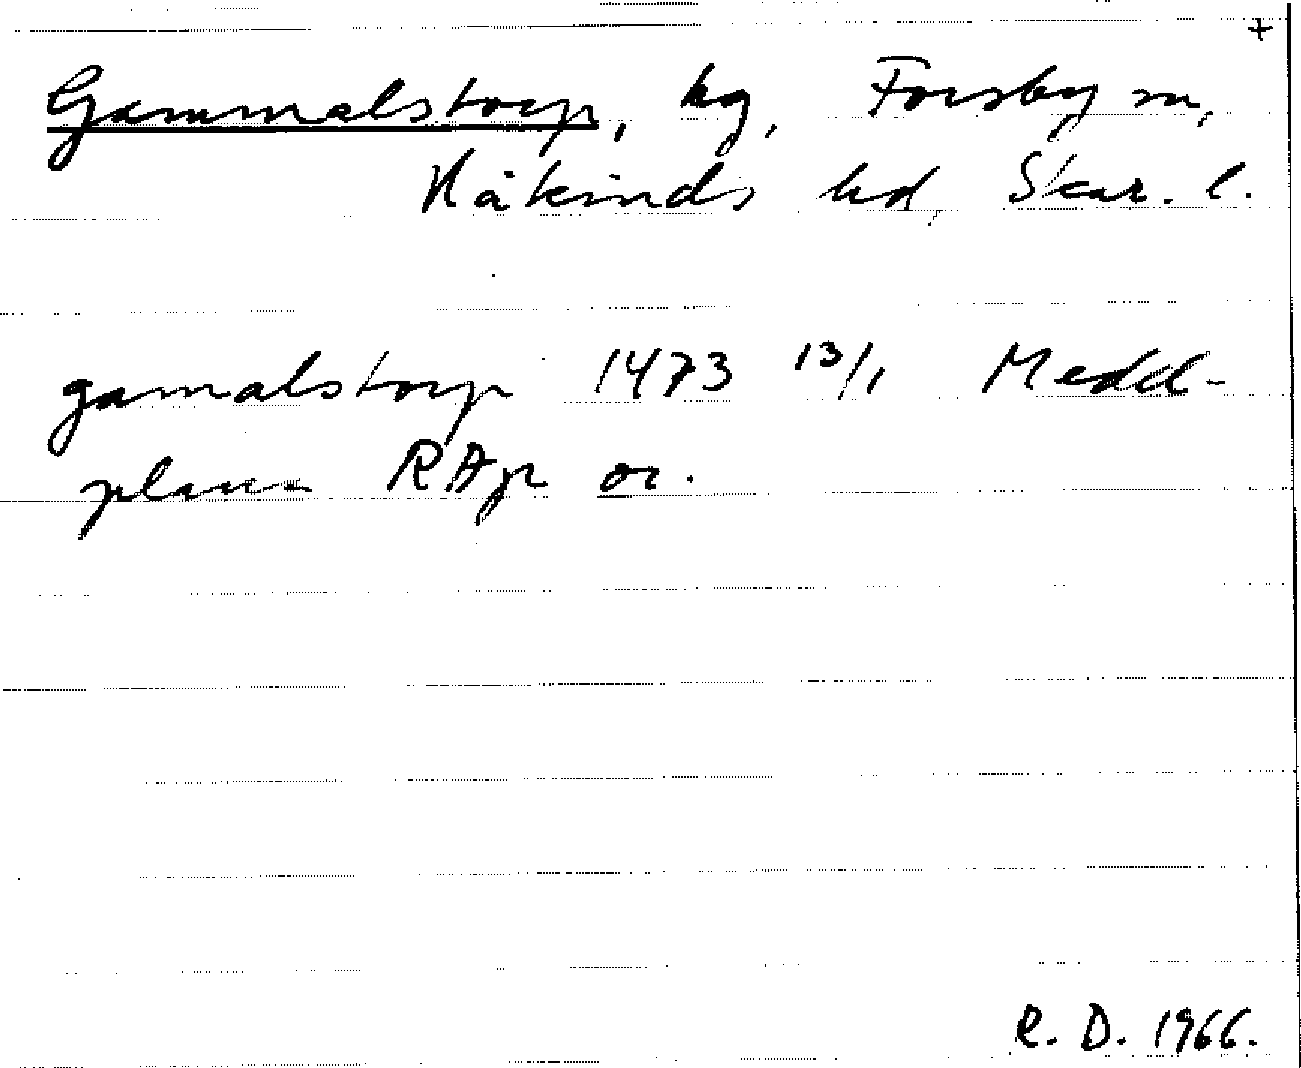 +
Gammalstorp, hg, Forsby sn,
Kåkinds hd, Skar. l.
gamalstorp 1473 13/1 Medel-
plana RAp or.
R. D. 1966.